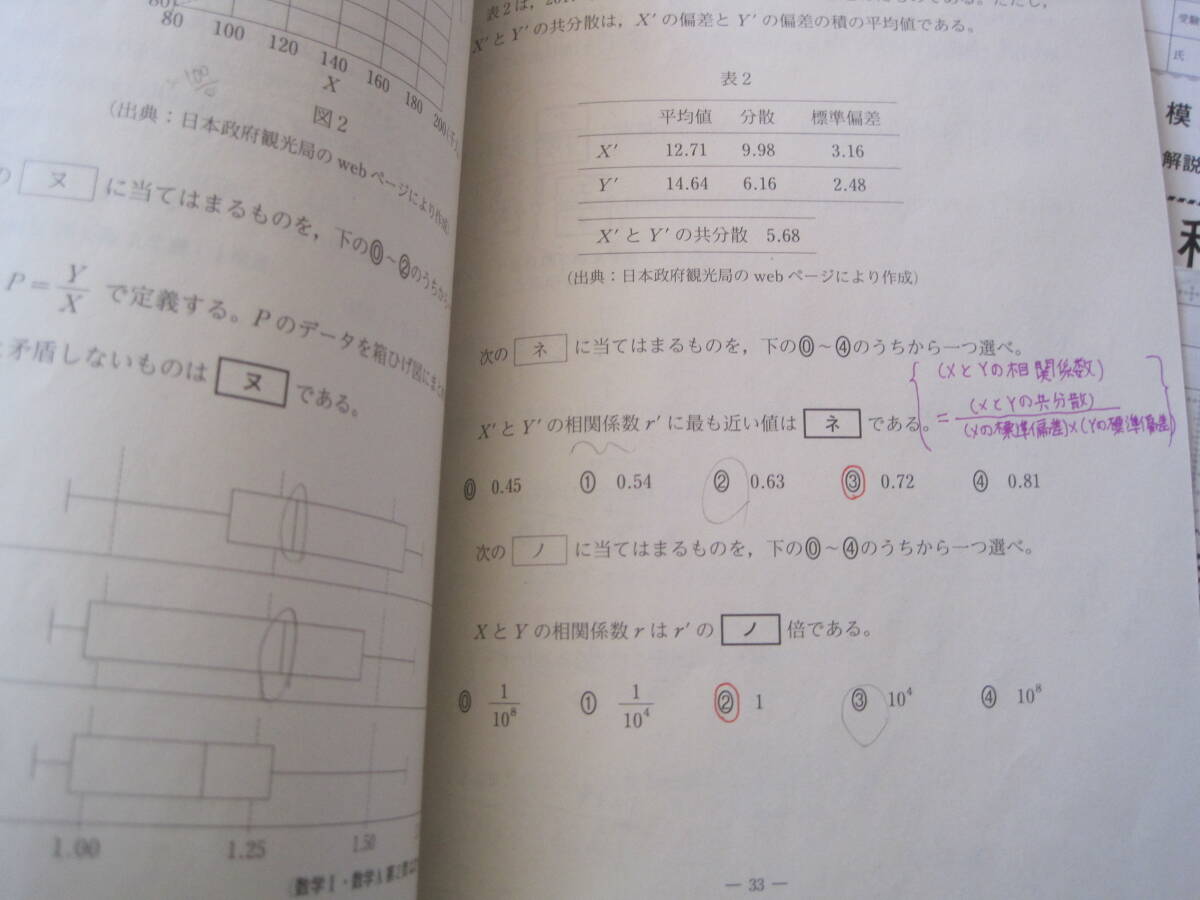 80
80 100 120 140 160 180 200(千人
X
図2
(出典：日本政府観光局の web ページにより作成)
の ヌ に当てはまるものを，下の⓪～②のうちから一
P=Y/X で定義する。Pのデータを箱ひげ図にまと
と矛盾しないものは ヌ である。
1.00 1.25 1.50
(数学Ⅰ・数学A
表2は，201
X′とY′の共分散は，X′の偏差とY′の偏差の積の平均値である。
表2
平均値 分散 標準偏差
X′ 12.71 9.98 3.16
Y′ 14.64 6.16 2.48
X′とY′の共分散 5.68
(出典：日本政府観光局の web ページにより作成)
次の ネ に当てはまるものを，下の⓪～④のうちから一つ選べ。
X′とY′の相関係数 r′に最も近い値は ネ である。
(XとYの相関係数)
= (XとYの共分散)/(Xの標準偏差)×(Yの標準偏差)
⓪ 0.45 ① 0.54 ② 0.63 ③ 0.72 ④ 0.81
次の ノ に当てはまるものを，下の⓪～④のうちから一つ選べ。
XとYの相関係数 r は r′の ノ 倍である。
⓪ 1/10⁸ ① 1/10⁴ ② 1 ③ 10⁴ ④ 10⁸
— 33 —
受験
氏
模
解説